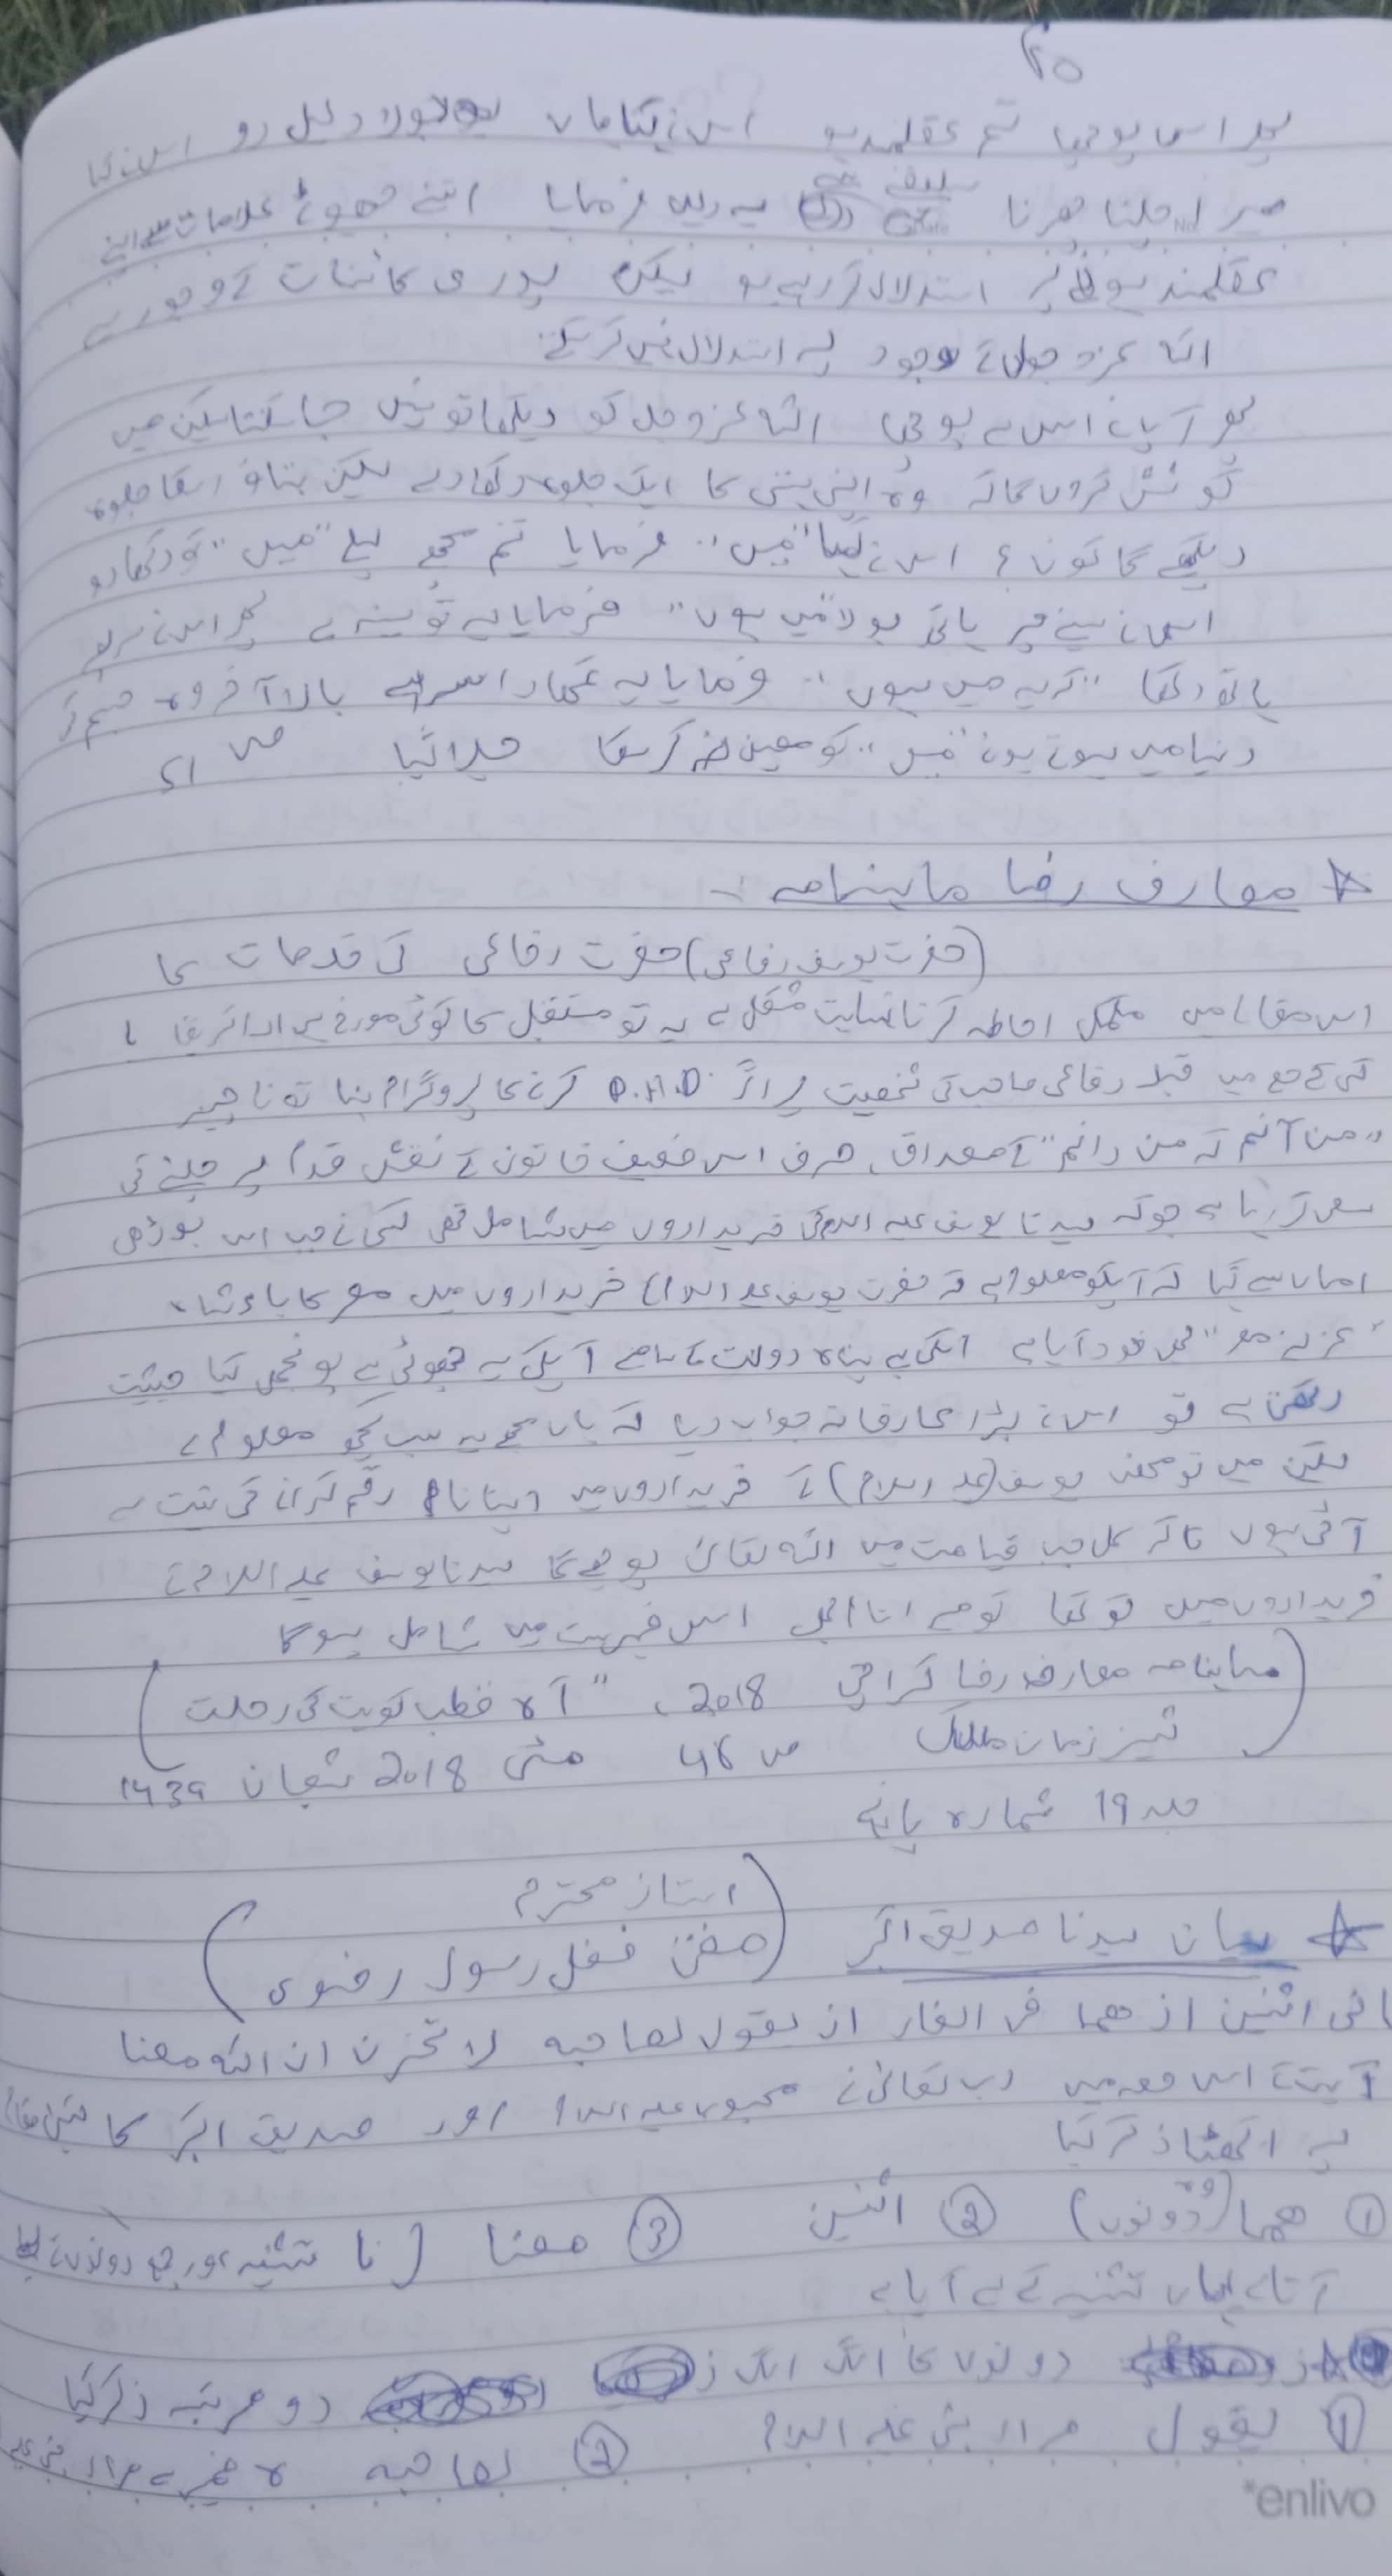 ۲۵
پھر اس پوچھا تم عقلمند ہو اس نے بتایا ہاں بولا دلیل دو اس نے کہا
میرا چلنا پھرنا سلیقے یہ دلیل فرمایا اتنے چھوٹے علامات سے اپنے
عقلمند ہونے پر استدلال کر رہے ہو لیکن پوری کائنات کے وجود سے
اللہ عزوجل کے وجود پہ استدلال نہیں کرتے
پھر آپ نے اس سے پوچھا اللہ عزوجل کو دیکھا تو نہیں جا سکتا لیکن میں
کوشش کروں گا کہ وہ اپنی ہستی کا ایک جلوہ دکھا دے لیکن بتاؤ اسکا جلوہ
دیکھے گا کون؟ اس نے کہا "میں" فرمایا تم مجھے پہلے "میں" تو دکھا دو
اس نے سینے پر ہاتھ بولا "میں ہوں" فرمایا یہ تو سینہ ہے پھر اس نے سر پر
ہاتھ رکھا "کہ یہ میں ہوں" فرمایا یہ تمھارا سر ہے بالاآخر وہ جسم کی
دنیا میں ہوتے ہوئے "میں" کو معین نہ کر سکا چلا گیا ص 51
☆ معارف رضا ماہنامہ :-
(حضرت یوسف رفاعی) حضرت رفاعی کی خدمات کا
اس مقالے میں مکمل احاطہ کرنا نہایت مشکل ہے یہ تو مستقبل کا کوئی مورخ ہی ادا کریگا یا
کسی جامع میں قبلہ رفاعی صاحب کی شخصیت پر اگر P.H.D کرنے کا پروگرام بنا تو ناچیز
"من آنم کہ من دانم" کے مصداق، صرف اس ضعیف خاتون کے نقش قدم پر چلنے کی
سعی کر رہا ہے جو کہ سیدنا یوسف علیہ السلام کی خریداروں میں شامل تھی کسی نے جب اس بوڑھی
اماں سے کہا کہ آپکو معلوم ہے کہ حضرت یوسف علیہ السلام خریداروں میں مصر کا بادشاہ
"عزیز مصر" بھی خود آیا ہے اسکی بے پناہ دولت کے سامنے آپکی یہ چھوٹی سے پونجی کیا حیثیت
رکھتی ہے تو اس نے بڑا عارفانہ جواب دیا کہ ہاں مجھے یہ سب کچھ معلوم ہے
لیکن میں تو محض یوسف (علیہ السلام) کے خریداروں میں اپنا نام رقم کرانے کی نیت سے
آئی ہوں تاکہ کل جب قیامت میں اللہ تعالیٰ پوچھے گا سیدنا یوسف علیہ السلام کے
خریداروں میں کون تھا تو میرا نام بھی اس فہرست میں شامل ہو گا
(ماہنامہ معارف رضا کراچی 2018، "آہ قطب کویت کی رحلت
شیر زمان ملک ص 46 مئی 2018 شعبان 1439)
جلد 19 شمارہ پانچ
☆ بیان سیدنا صدیق اکبر (استاذ محترم
مفتی فضل رسول رضوی)
ثانی اثنین اذ هما فی الغار اذ یقول لصاحبه لا تحزن ان اللہ معنا
آیت کے اس حصہ میں رب تعالیٰ نے محبوب علیہ السلام اور صدیق اکبر کا تین مقام
پہ اکھٹا ذکر کیا
① ھما (وہ دونوں) ② اثنین ③ معنا (نا تثنیہ اور جمع دونوں کے لیے
آتا ہے یہاں تثنیہ کے لیے آیا ہے
دونوں کا الگ الگ دو مرتبہ ذکر کیا
① یقول مراد نبی علیہ السلام ② لصاحبه ہ ضمیر سے مراد نبی علیہ
*enlivo